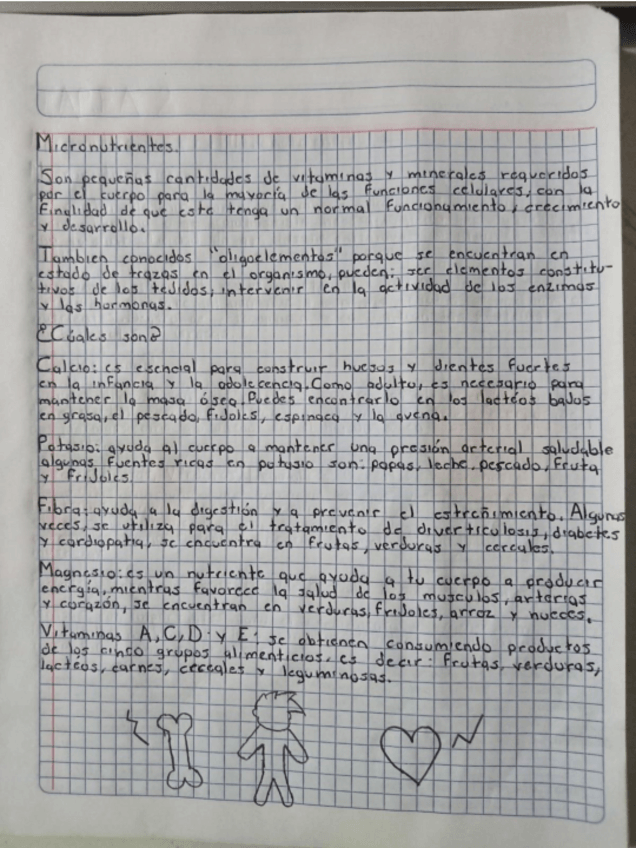 Micronutrientes.
Son pequeñas cantidades de vitaminas y minerales requeridos
por el cuerpo para la mayoría de las funciones celulares, con la
finalidad de que esté tenga un normal funcionamiento, crecimiento
y desarrollo.
Tambien conocidos "oligoelementos" porque se encuentran en
estado de trazas en el organismo, pueden: ser elementos constitu-
tivos de los tejidos, intervenir en la actividad de los enzimas
y las hormonas.
¿Cúales son?
Calcio: es esencial para construir huesos y dientes fuertes
en la infancia y la adolecencia. Como adulto, es necesario para
mantener la masa ósea. Puedes encontrarlo en los lactéos bajos
en grasa, el pescado, fijoles, espinaca y la avena.
Potasio: ayuda al cuerpo a mantener una presión arterial saludable
algunas fuentes ricas en potasio son: papas, leche, pescado, fruta
y frijoles.
Fibra: ayuda a la digestión y a prevenir el estreñimiento. Algunas
veces, se utiliza para el tratamiento de diverticulosis, diabetes
y cardiopatia, se encuentra en frutas, verduras y cereales.
Magnesio: es un nutriente que ayuda a tu cuerpo a producir
energía, mientras favorece la salud de los musculos, arterias
y corazón, se encuentran en verduras, frijoles, arroz y nueces.
Vitaminas A, C, D y E: se obtienen consumiendo productos
de los cinco grupos alimenticios. es decir: frutas, verduras,
lacteos, carnes, cereales y leguminosas.